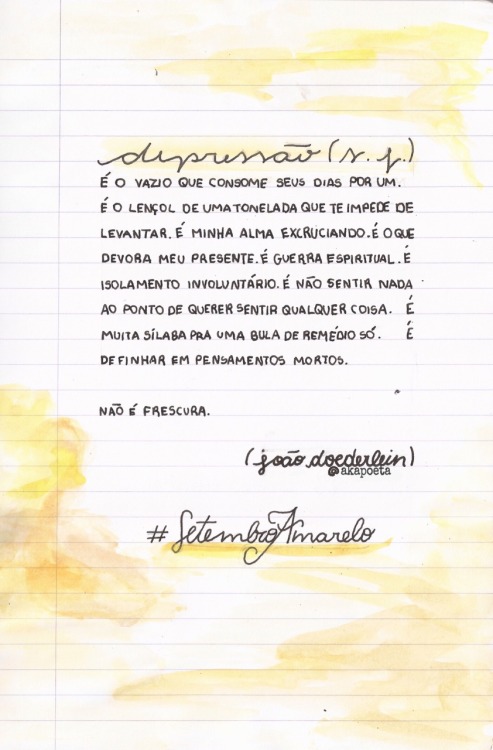 depressão (s. f.)
É O VAZIO QUE CONSOME SEUS DIAS POR UM.
É O LENÇOL DE UMA TONELADA QUE TE IMPEDE DE
LEVANTAR. É MINHA ALMA EXCRUCIANDO. É O QUE
DEVORA MEU PRESENTE. É GUERRA ESPIRITUAL. É
ISOLAMENTO INVOLUNTÁRIO. É NÃO SENTIR NADA
AO PONTO DE QUERER SENTIR QUALQUER COISA. É
MUITA SÍLABA PRA UMA BULA DE REMÉDIO SÓ. É
DEFINHAR EM PENSAMENTOS MORTOS.
NÃO É FRESCURA.
(joão doederlein)
@akapoeta
#SetembroAmarelo